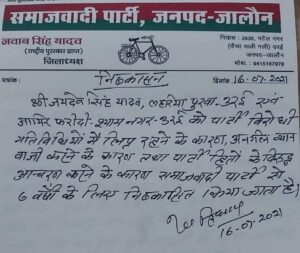 समाजवादी पार्टी, जनपद-जालौन
नवाब सिंह यादव
(राष्ट्रीय पुरस्कार प्राप्त)
जिलाध्यक्ष
निवास : 2635, पटेल नगर
उरई
जनपद-जालौन
मो० : 9415167978
पत्रांक:
दिनांक 16.07.2021
निष्कासन
श्री जयदेव सिंह यादव, लहरिया पुरवा-उरई एवं
आमिर फरीदी-श्याम नगर-उरई को पार्टी विरोधी
गतिविधियों में लिप्त रहने के कारण, अनर्गल बयान
बाजी करने के कारण तथा पार्टी हितों के विरुद्ध
आचरण करने के कारण समाजवादी पार्टी से
6 वर्षों के लिए निष्कासित किया जाता है।
16-07-2021